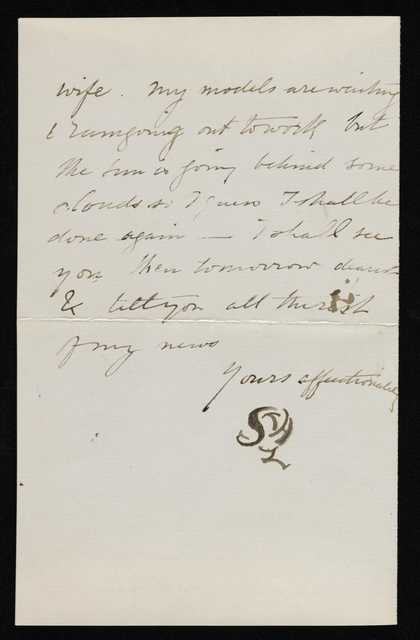 wife. My models are waiting
& I am going out to work but
the sun is going behind some
clouds so I guess I shall be
done again — I shall see
you then tomorrow dearest
& tell you all the rest
of my news
Yours affectionately